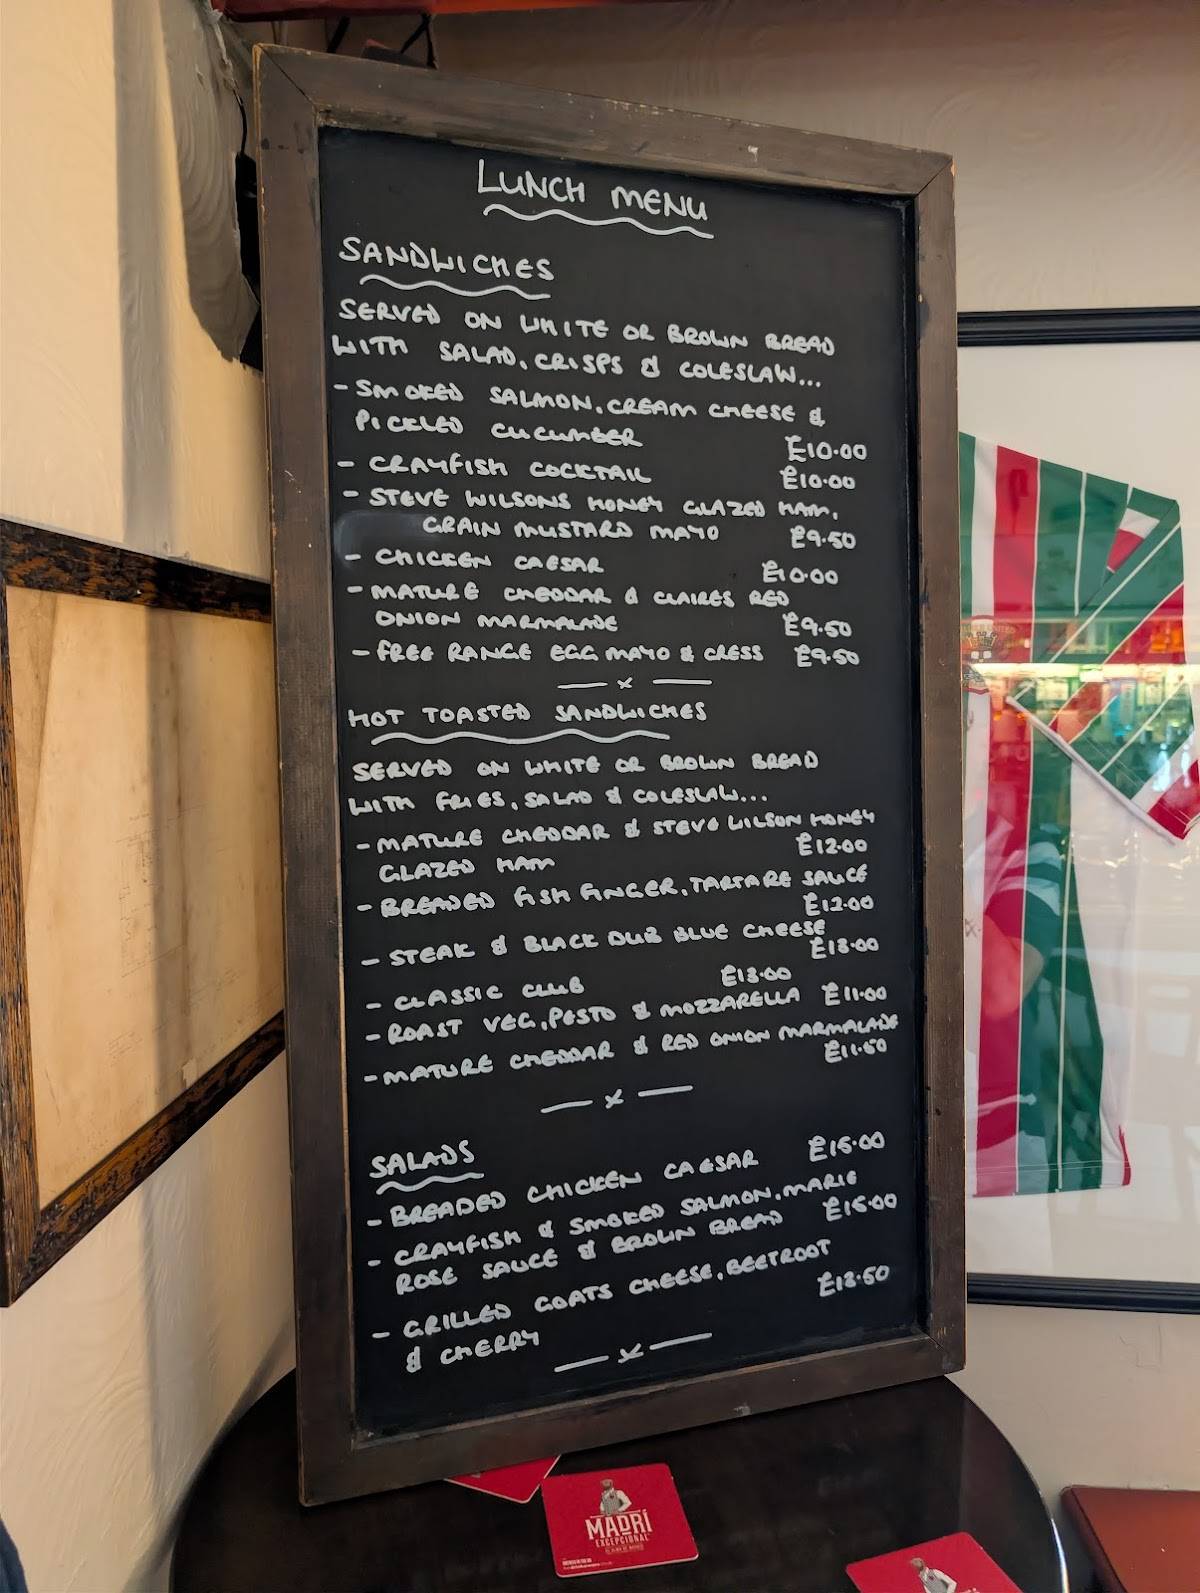 LUNCH MENU
SANDWICHES
SERVED ON WHITE OR BROWN BREAD
WITH SALAD, CRISPS & COLESLAW...
- SMOKED SALMON, CREAM CHEESE &
PICKLED CUCUMBER £10.00
- CRAYFISH COCKTAIL £10.00
- STEVE WILSONS HONEY GLAZED HAM,
GRAIN MUSTARD MAYO £9.50
- CHICKEN CAESAR £10.00
- MATURE CHEDDAR & CLAIRES RED
ONION MARMALADE £9.50
- FREE RANGE EGG MAYO & CRESS £9.50
— x —
HOT TOASTED SANDWICHES
SERVED ON WHITE OR BROWN BREAD
WITH FRIES, SALAD & COLESLAW...
- MATURE CHEDDAR & STEVE WILSON HONEY
GLAZED HAM £12.00
- BREADED FISH FINGER, TARTARE SAUCE
£12.00
- STEAK & BLACK DUB BLUE CHEESE
£13.00
- CLASSIC CLUB £13.00
- ROAST VEG, PESTO & MOZZARELLA £11.00
- MATURE CHEDDAR & RED ONION MARMALADE
£11.50
— x —
SALADS
- BREADED CHICKEN CAESAR £15.00
- CRAYFISH & SMOKED SALMON, MARIE
ROSE SAUCE & BROWN BREAD £15.00
- GRILLED GOATS CHEESE, BEETROOT
& CHERRY £13.50
— x —
MADRÍ
EXCEPCIONAL